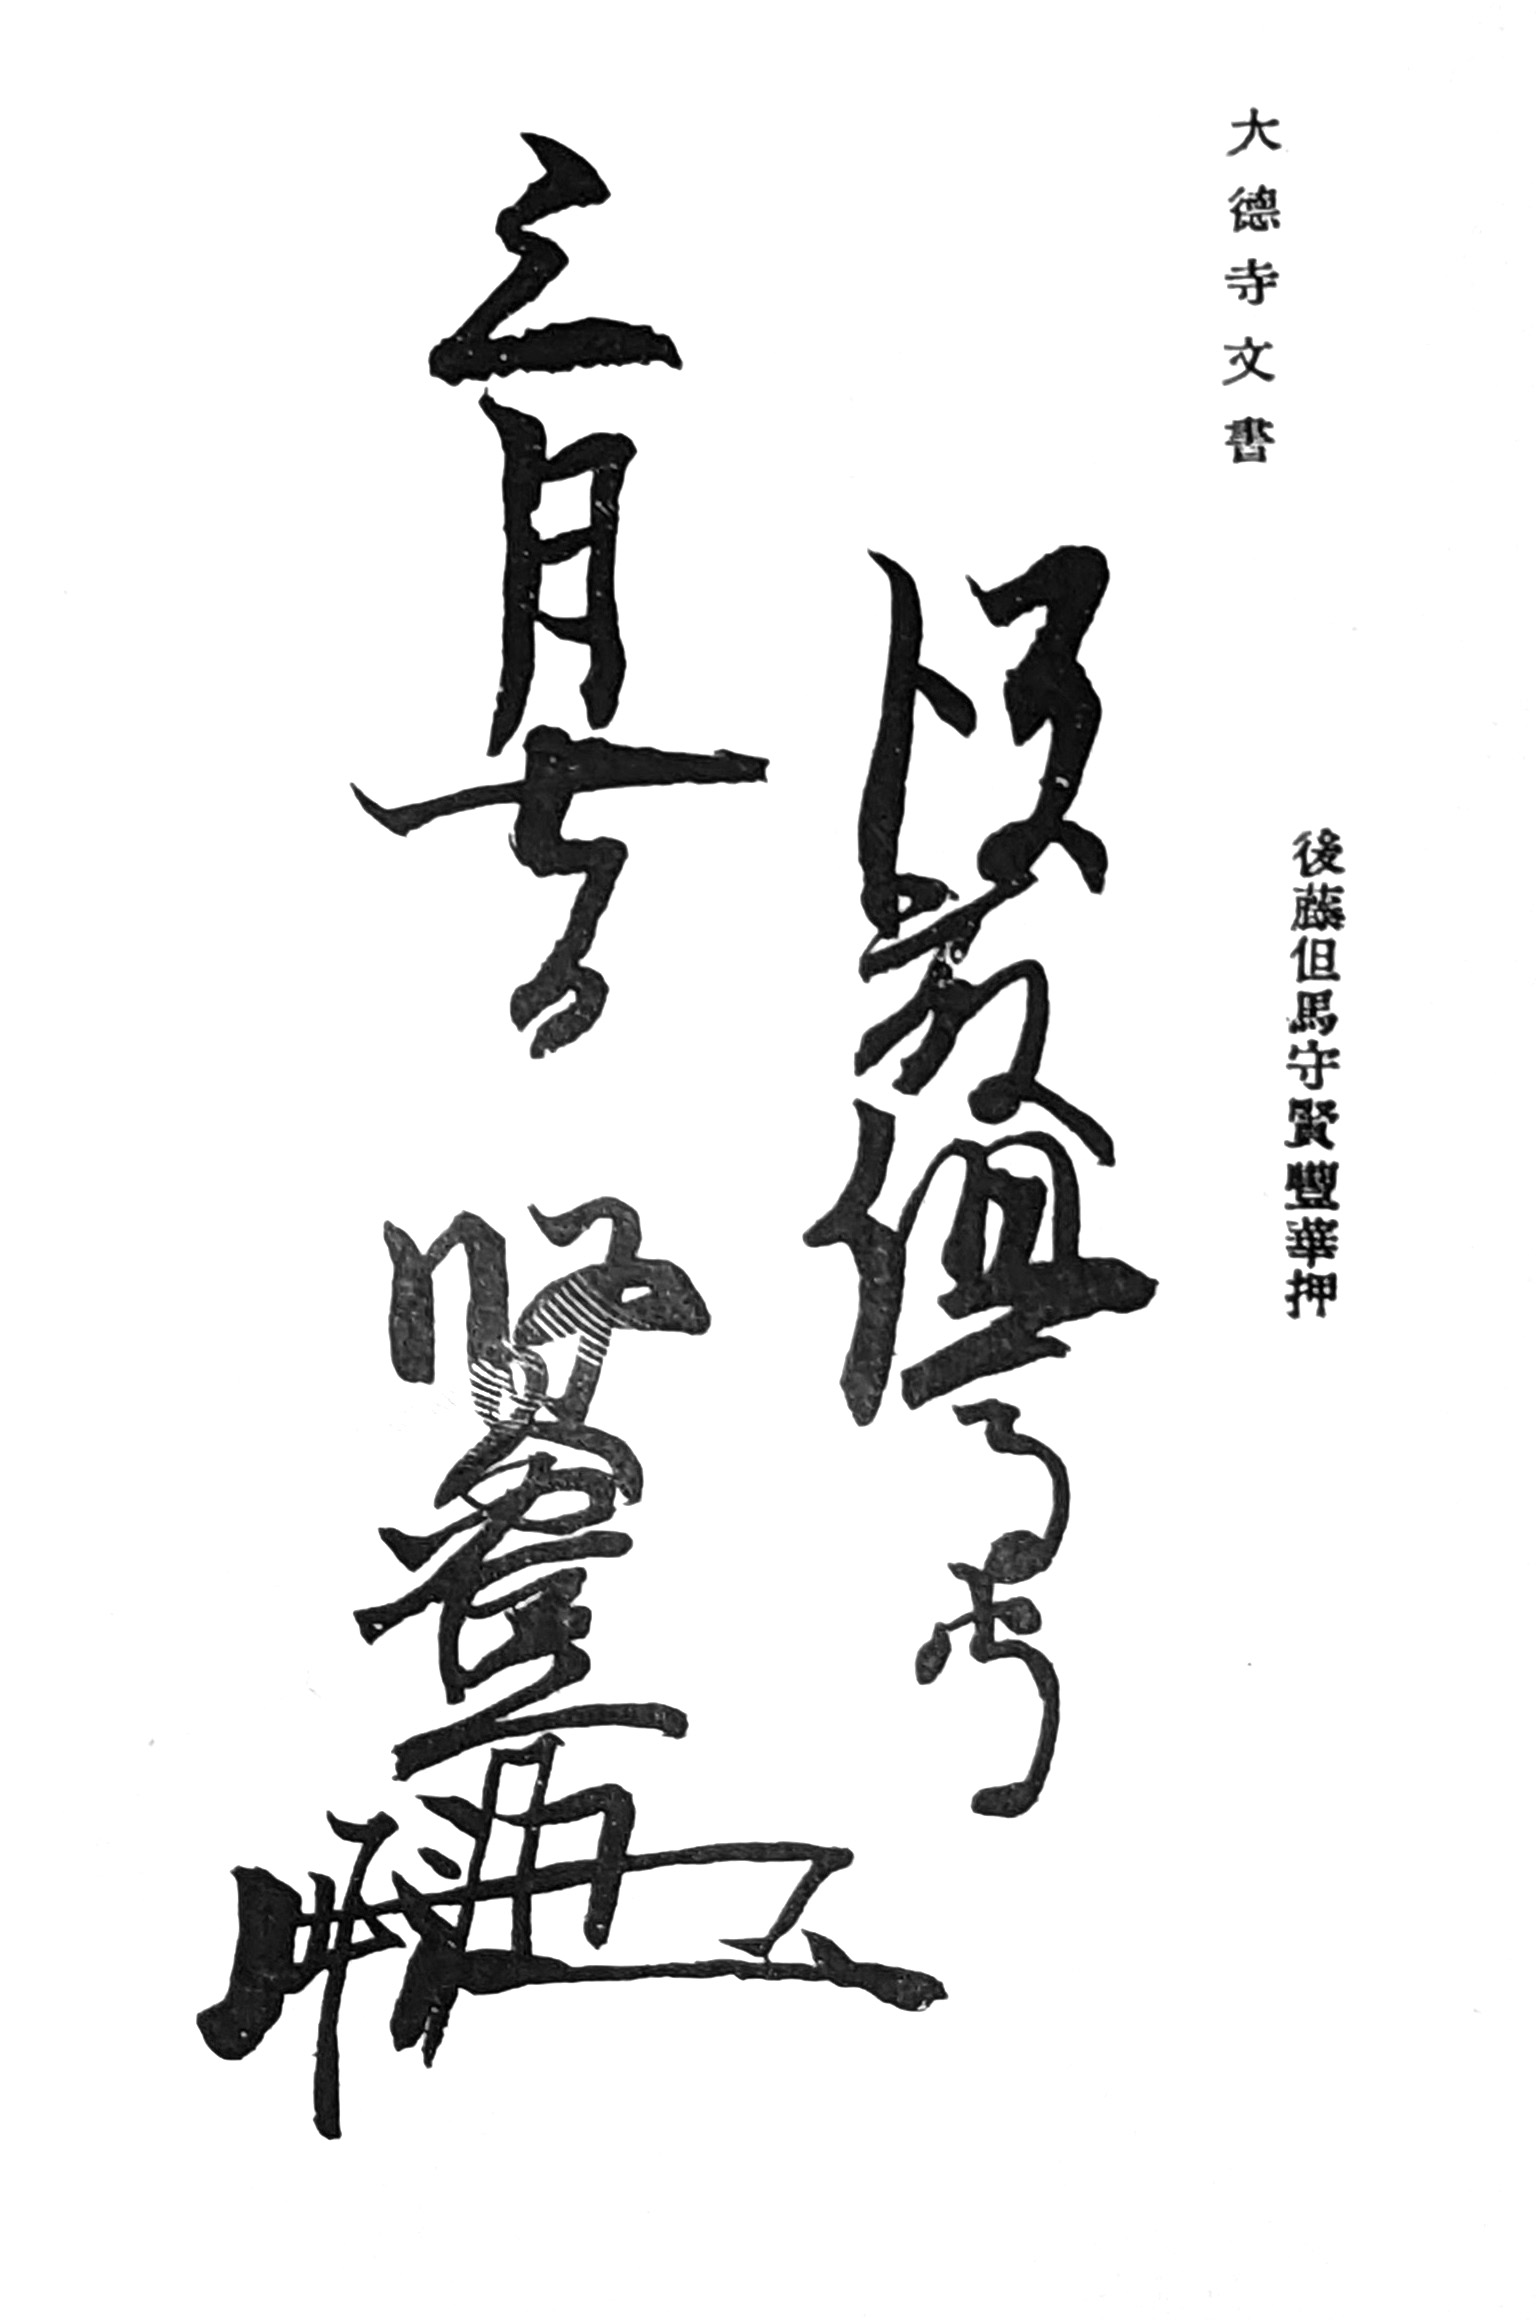 大德寺文書
後藤但馬守賢豐華押
後藤但馬守
三月七日 賢豐